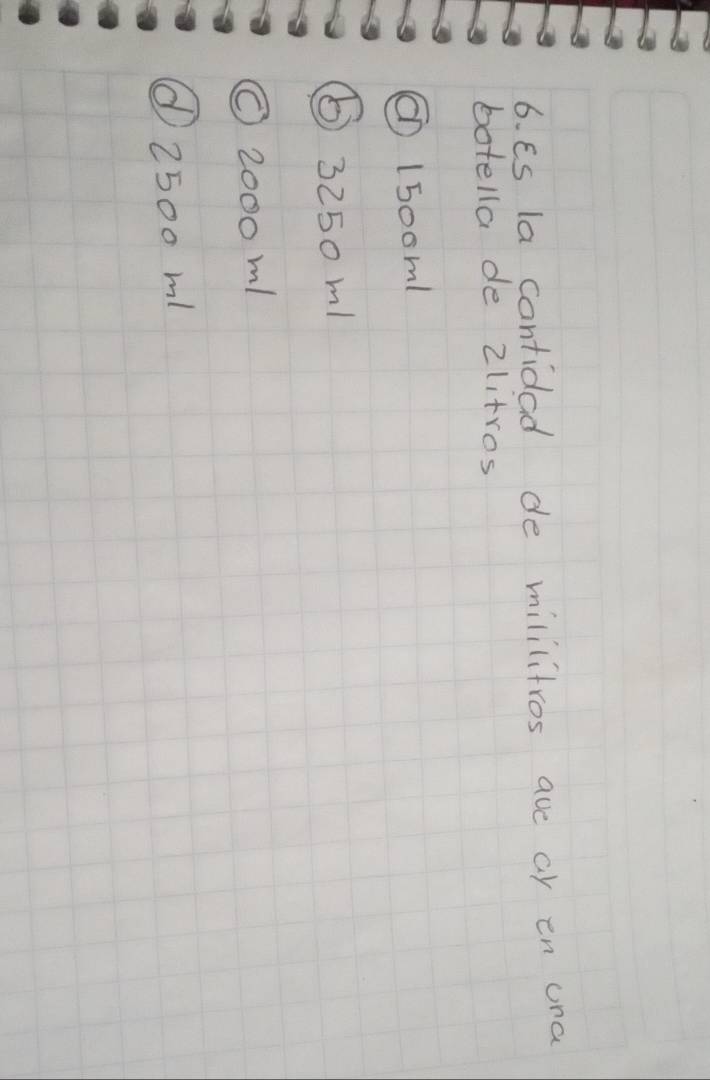 6. Es la cantidad de mililitros que ay en una
botella de 2litros
a 1500ml
b 3250 ml
c 2000 ml
d 2500 ml